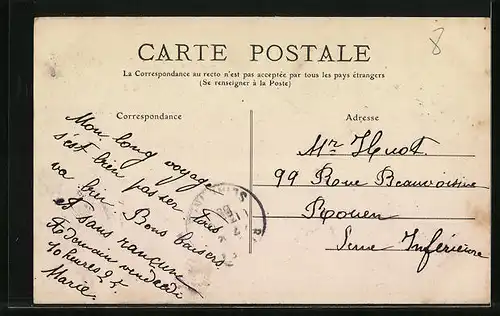 8
CARTE POSTALE
La Correspondance au recto n'est pas acceptée par tous les pays étrangers
(Se renseigner à la Poste)
Correspondance
Adresse
Mon long voyage
s'est bien passer. Tous
va bien. Bons baisers
et sans rancune
A demain vendredi
10 heures 25.
Marie.
Mr Huot.
99 Rue Beauvoisine
Rouen
Seine Inférieure